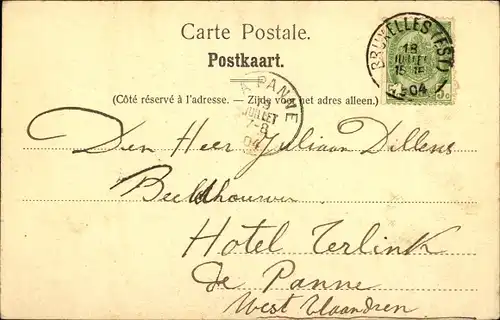 Carte Postale.
Postkaart.
(Côté réservé à l'adresse. — Zijde voor het adres alleen.)
BRUXELLES (EST)
18
JUILLET
15-
1904
PANNE
19
JUILLET
7-8
04
Den Heer Juliaan Dillens
Beeldhouwer
Hotel Terlink
De Panne
West Vlaandren